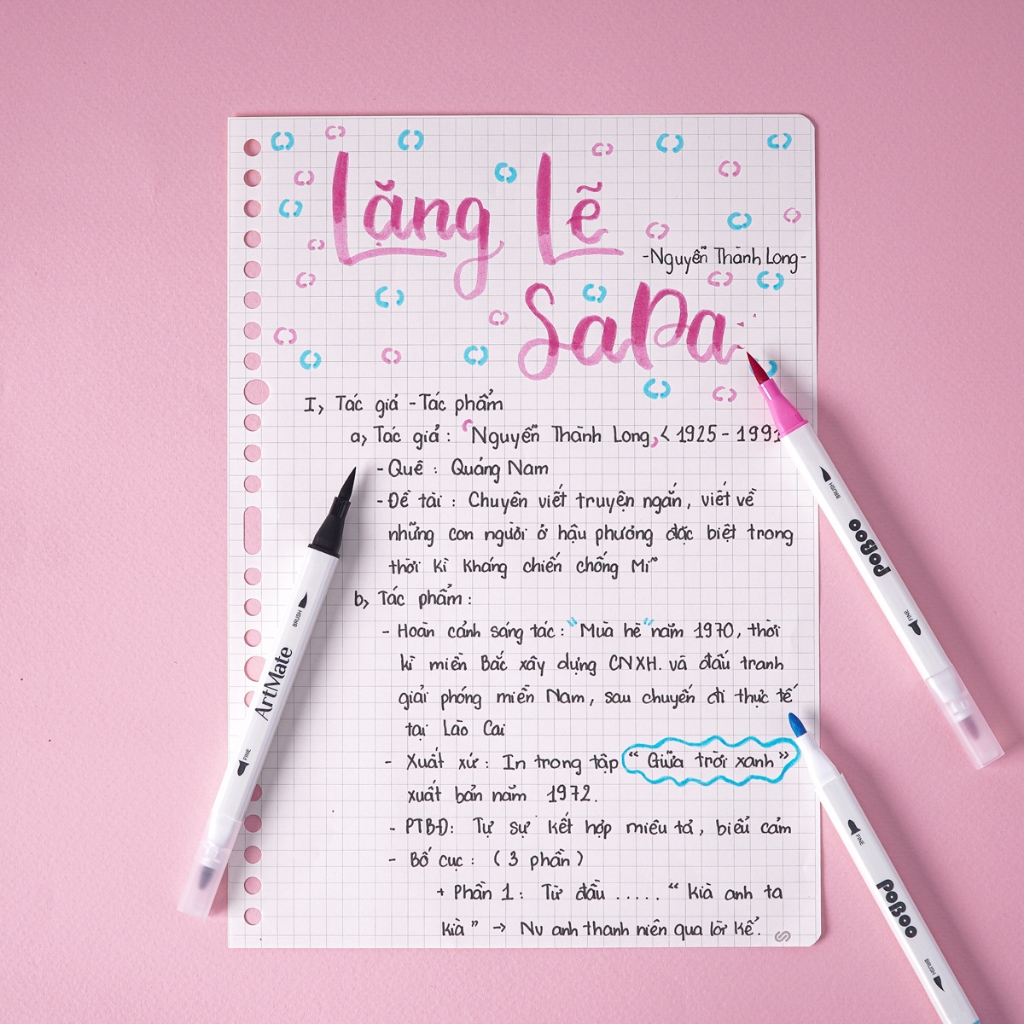 Lặng Lẽ
-Nguyễn Thành Long-
SaPa
I, Tác giả - Tác phẩm
a, Tác giả : "Nguyễn Thành Long, < 1925 - 1991
- Quê : Quảng Nam
- Đề tài : Chuyên viết truyện ngắn, viết về
những con người ở hậu phương đặc biệt trong
thời kì kháng chiến chống Mĩ
b, Tác phẩm :
- Hoàn cảnh sáng tác : "Mùa hè" năm 1970, thời
kì miền Bắc xây dựng CNXH. và đấu tranh
giải phóng miền Nam, sau chuyến đi thực tế
tại Lào Cai
- Xuất xứ : In trong tập "Giữa trời xanh"
xuất bản năm 1972.
- PTBĐ: Tự sự kết hợp miêu tả, biểu cảm
- Bố cục : ( 3 phần )
+ Phần 1 : Từ đầu ..... " kìa anh ta
kìa " → Nv anh thanh niên qua lời kể.
BRUSH
PoBoo
FINE
BRUSH
ArtMate
FINE
FINE
PoBoo
BRUSH